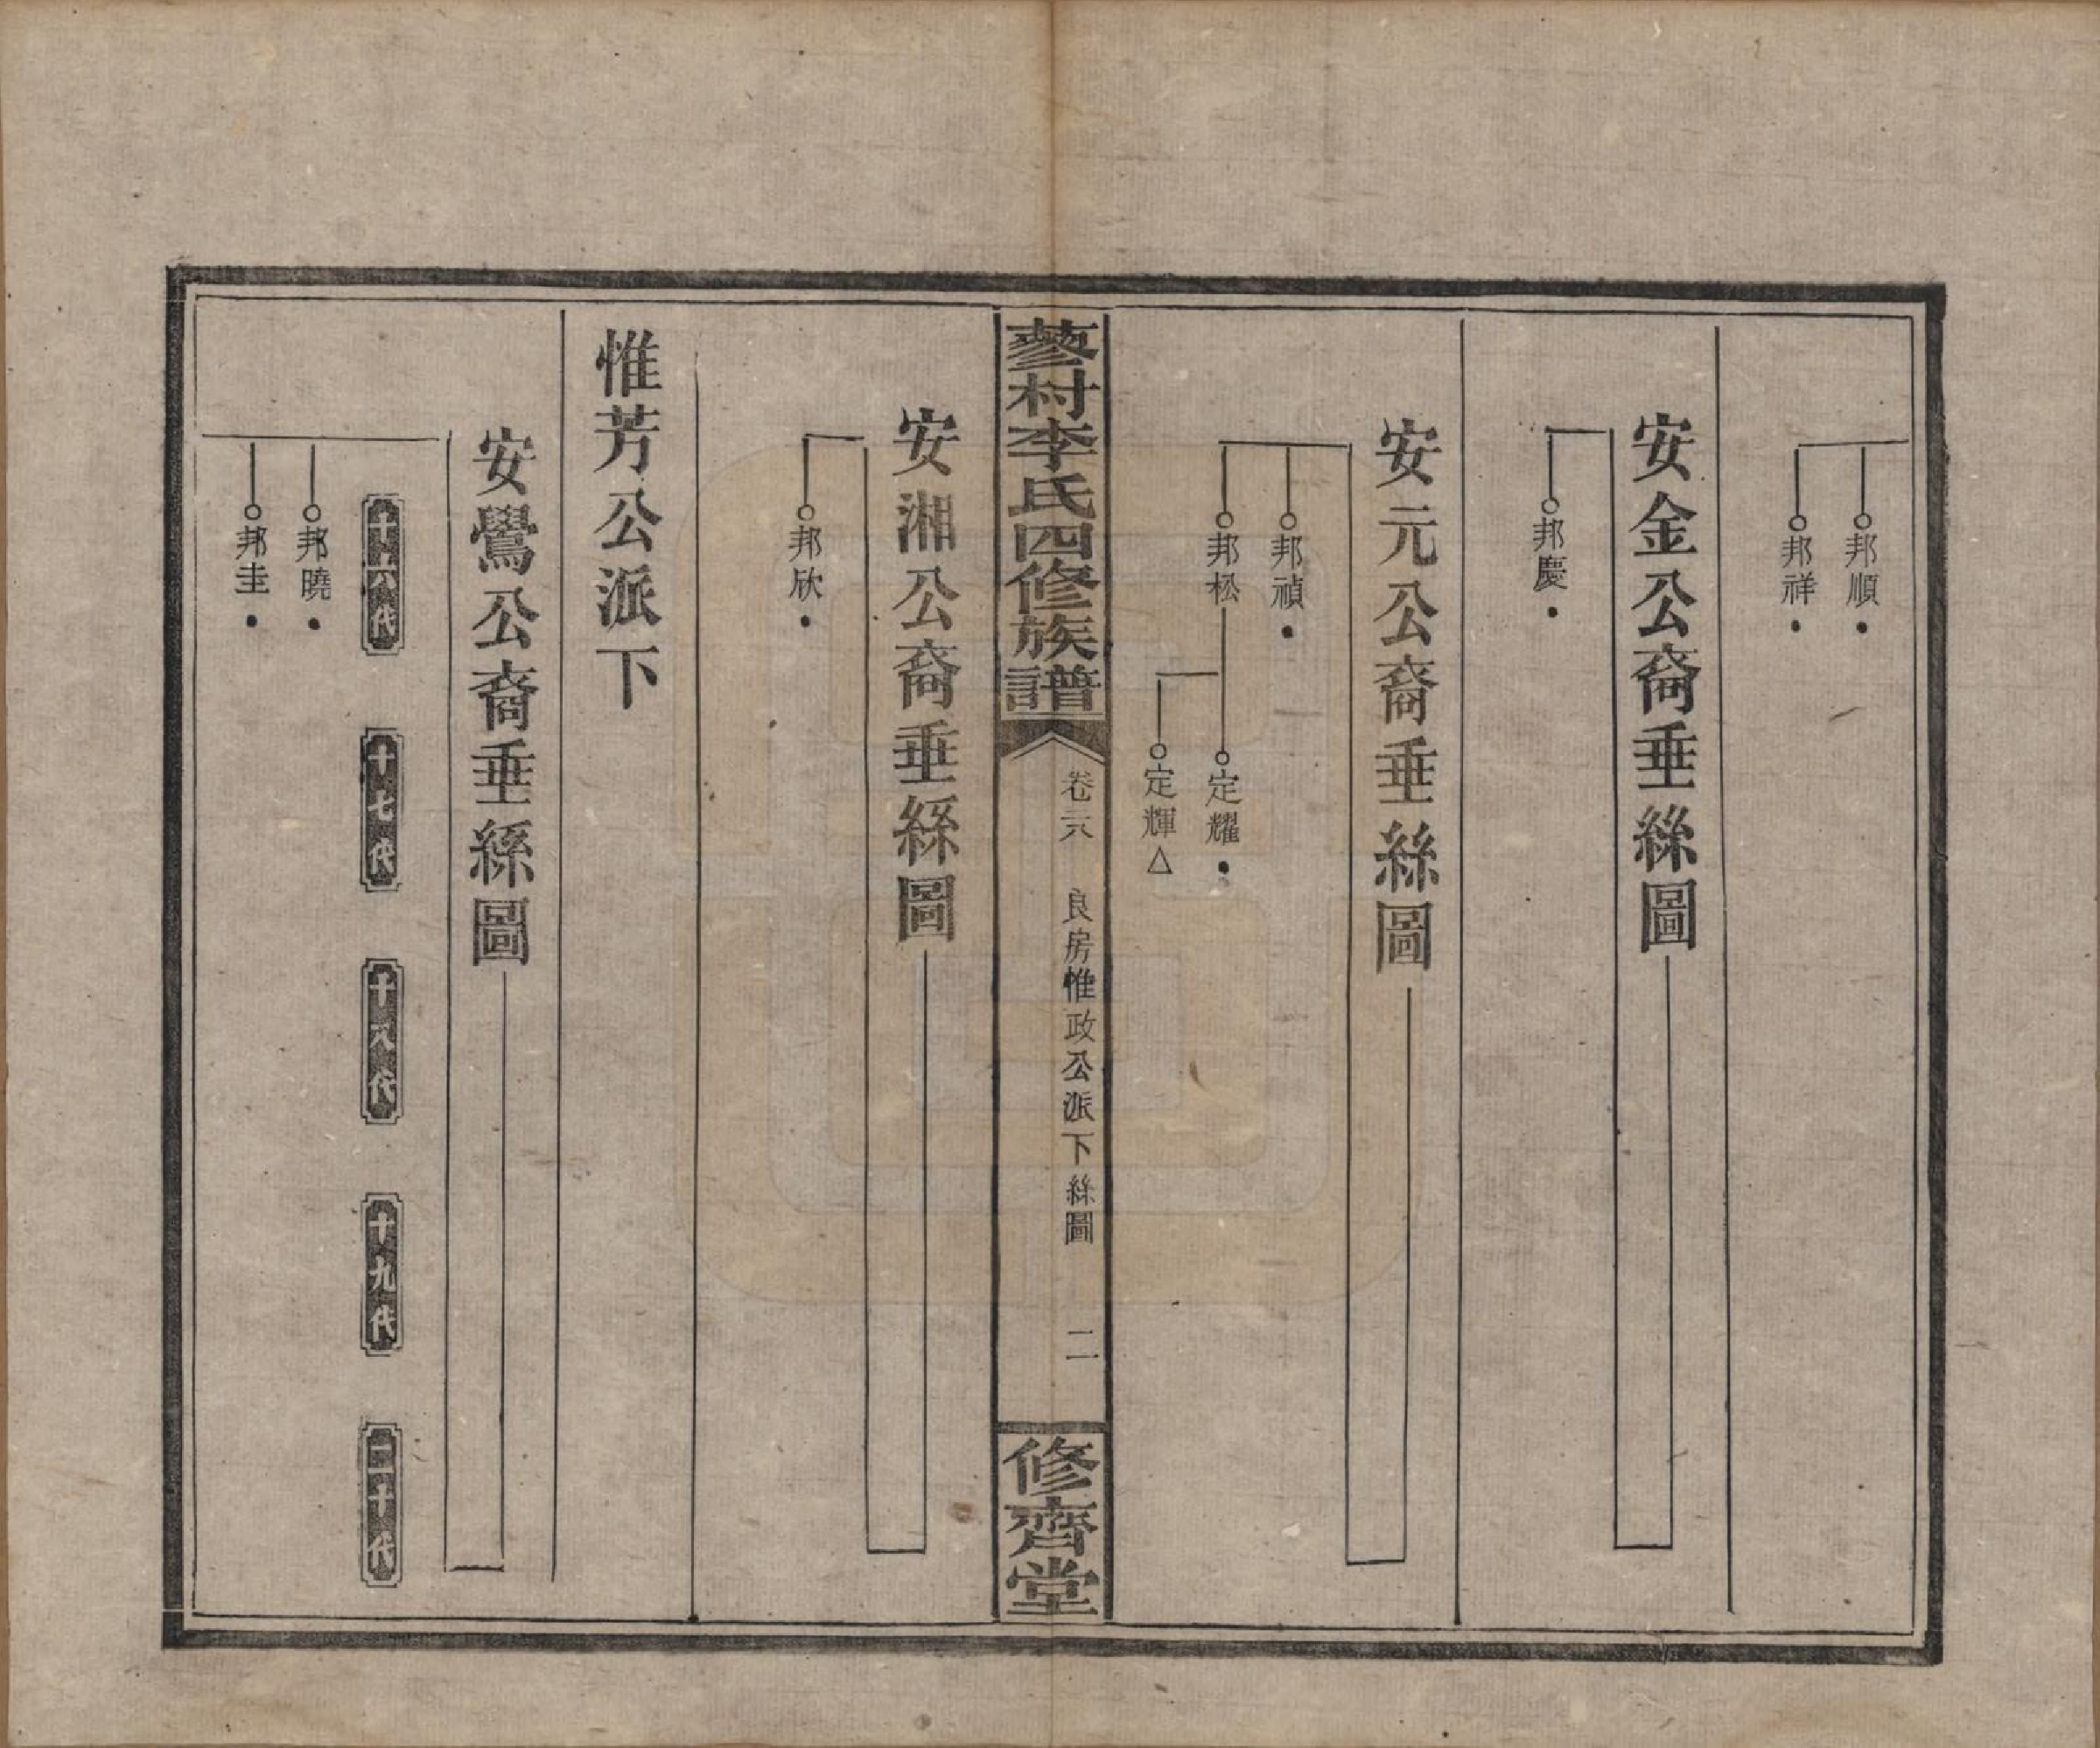 邦順•
邦祥•
安金公裔垂絲圖
邦慶•
安元公裔垂絲圖
邦禎•
邦松
定耀•
定輝△
蓼村李氏四修族譜
卷六
良房惟政公派下絲圖
二
修齊堂
安湘公裔垂絲圖
邦欣•
惟芳公派下
安鸎公裔垂絲圖
十六代
十七代
十八代
十九代
二十代
邦曉•
邦圭•